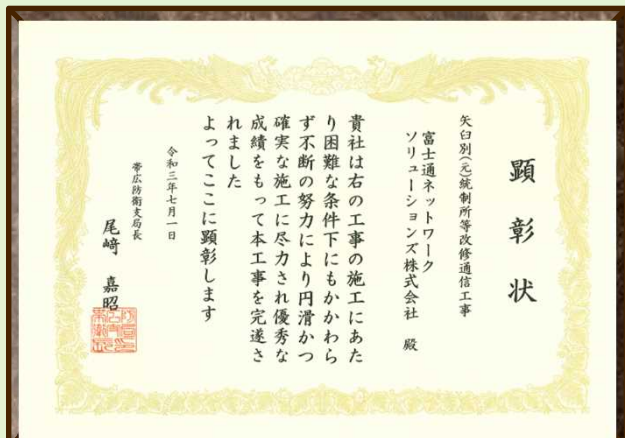 顕彰状
矢臼別(元)統制所等改修通信工事
富士通ネットワーク
ソリューションズ株式会社 殿
貴社は右の工事の施工にあた
り困難な条件下にもかかわら
ず不断の努力により円滑かつ
確実な施工に尽力され優秀な
成績をもって本工事を完遂さ
れました
よってここに顕彰します
令和三年七月一日
帯広防衛支局長
尾﨑 嘉昭